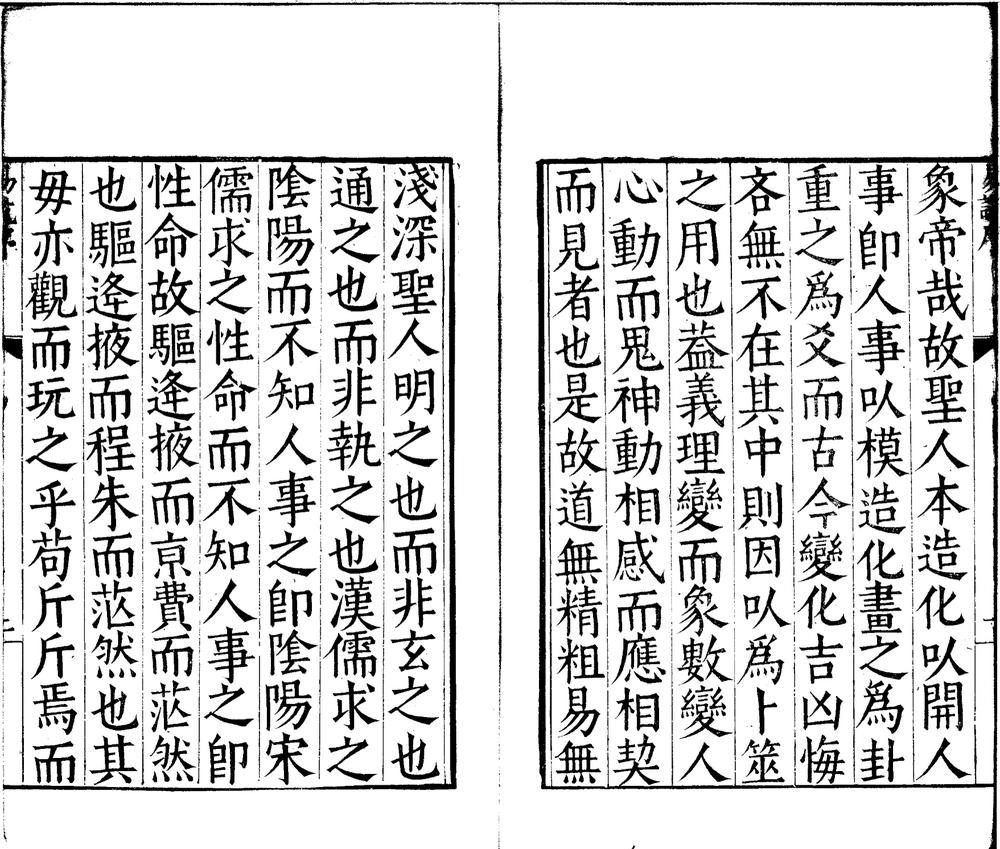 象帝哉故聖人本造化㕥開人
事卽人事㕥模造化畫之爲卦
重之爲爻而古今變化吉凶悔
吝無不在其中則因㕥爲卜筮
之用也葢義理變而象數變人
心動而鬼神動相感而應相契
而見者也是故道無精粗易無
淺深聖人明之也而非玄之也
通之也而非執之也漢儒求之
陰陽而不知人事之卽陰陽宋
儒求之性命而不知人事之卽
性命故驅逄掖而京費而茫然
也驅逄掖而程朱而茫然也其
毋亦觀而玩之乎苟斤斤焉而